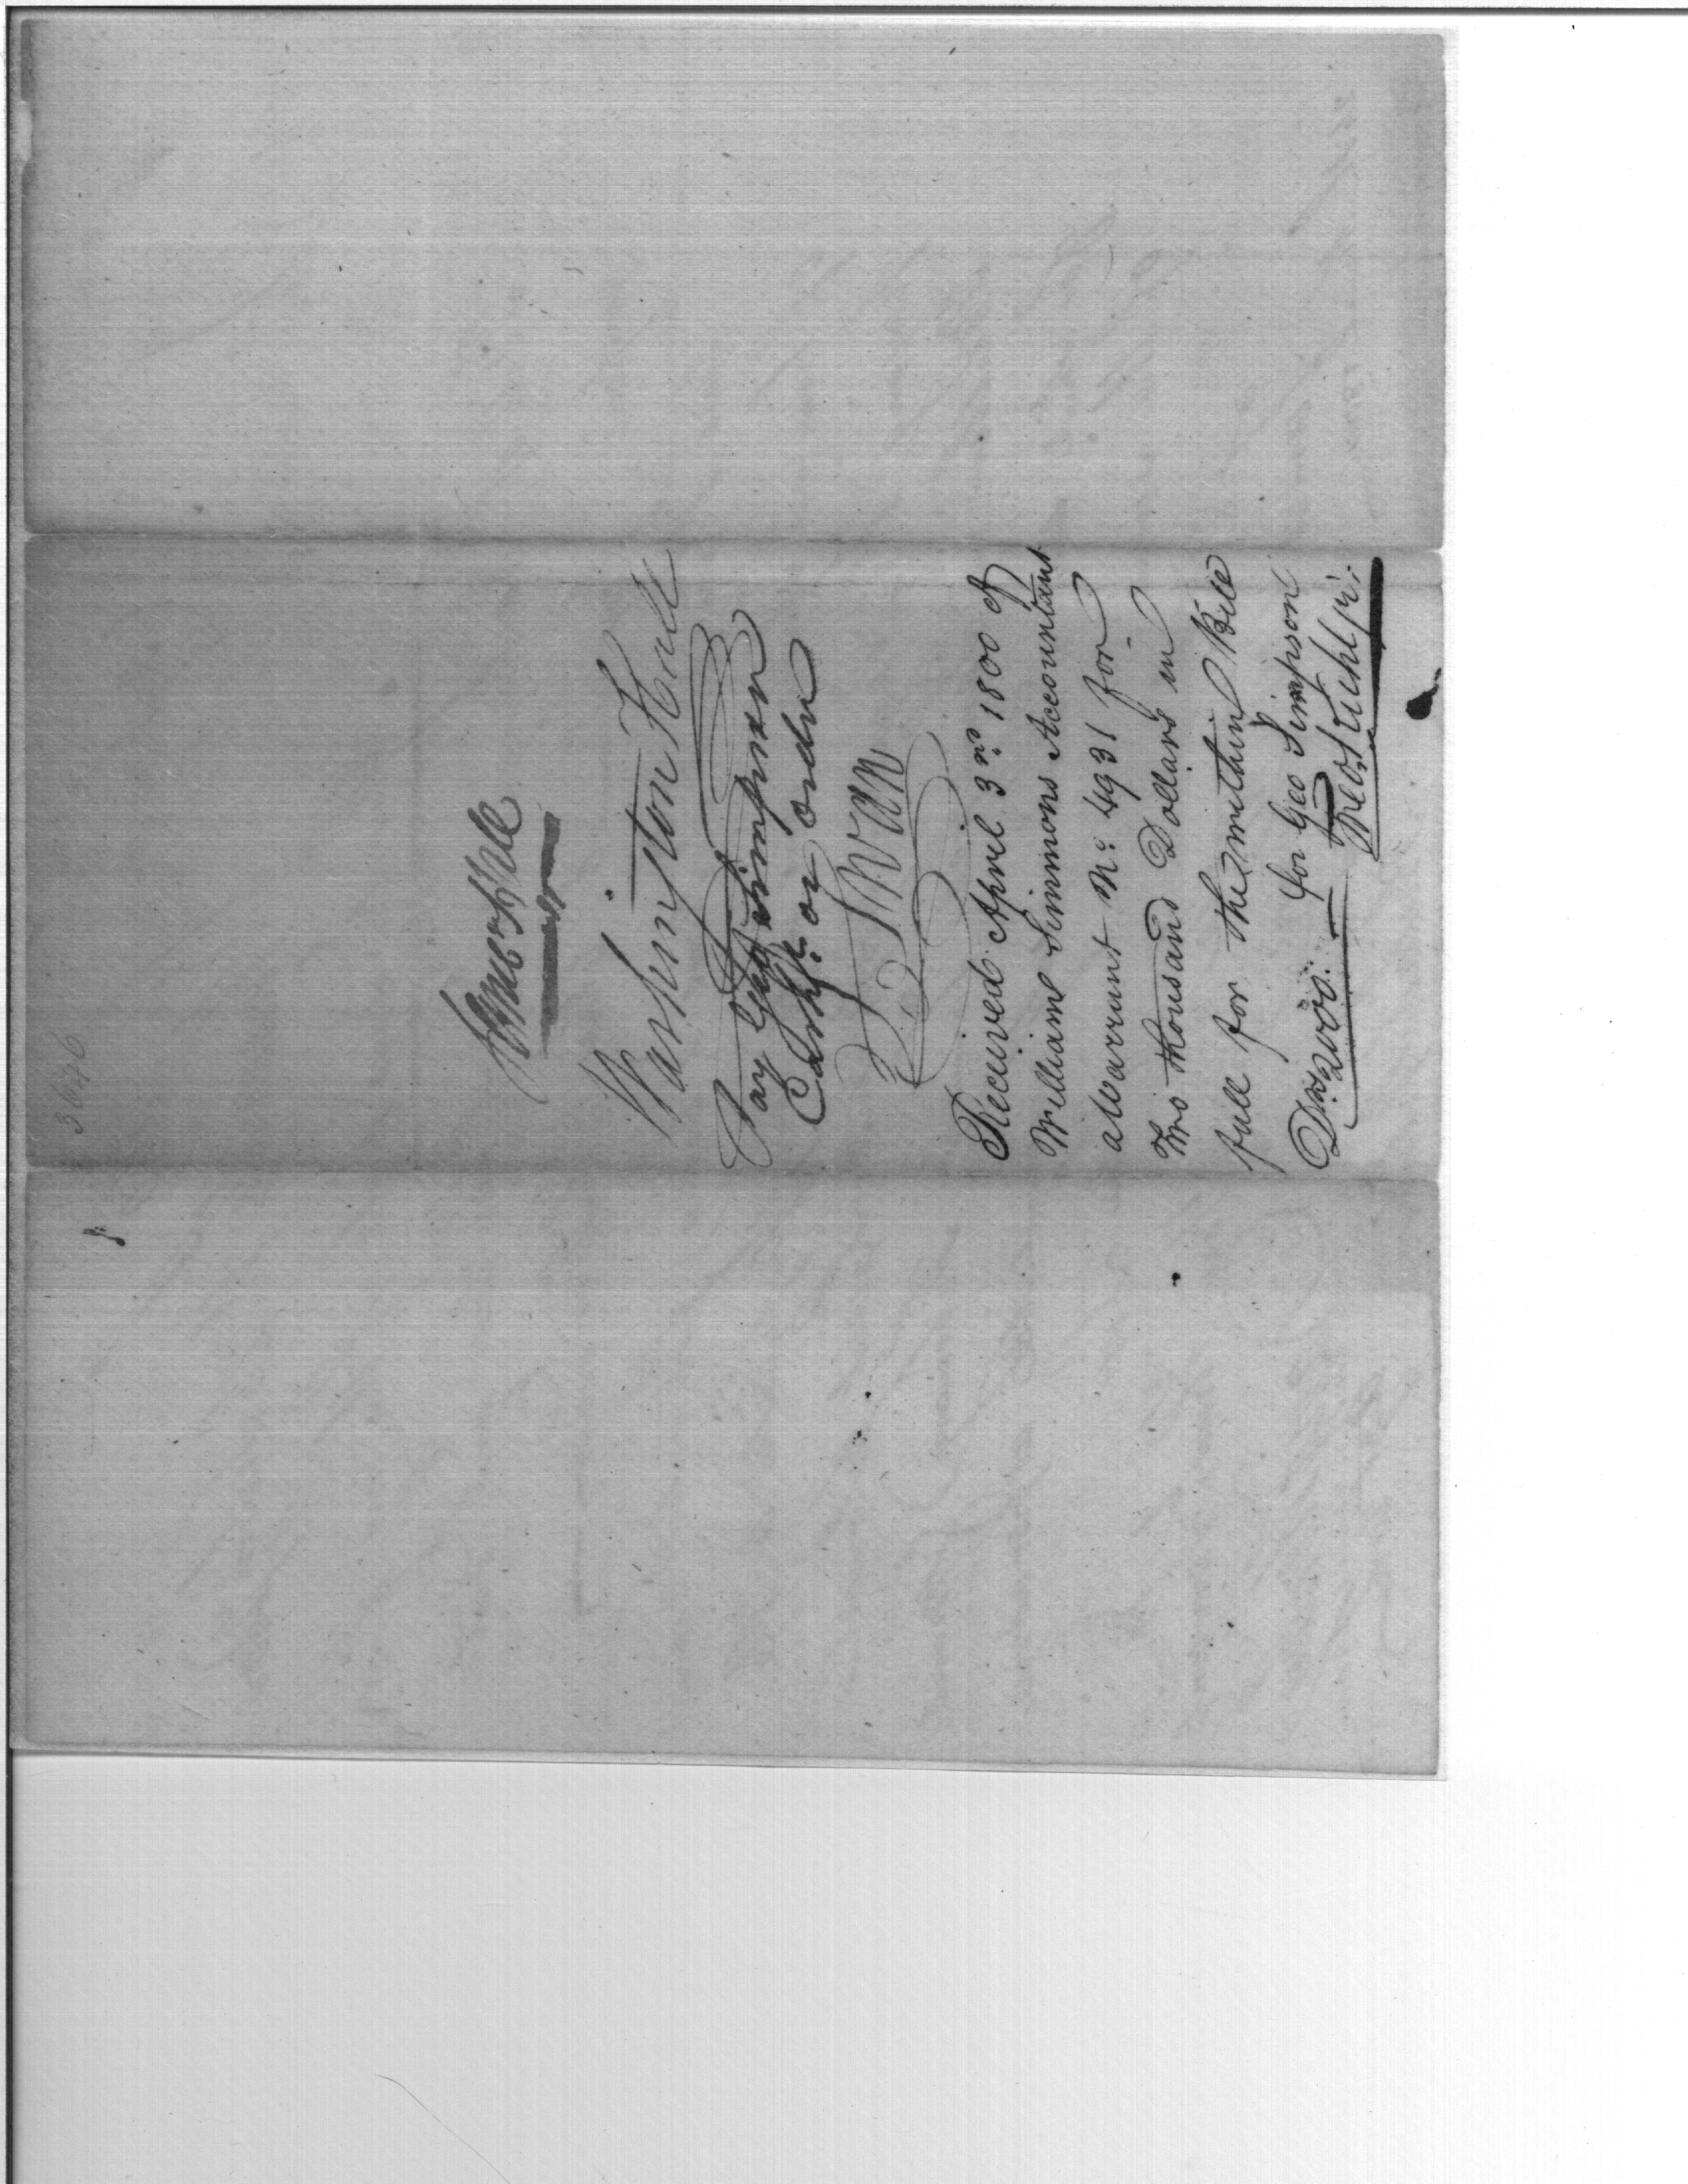 3646
Washington Hall
Pay Geo Simpson
Cashr. or order
Received April 3rd. 1800 of
William Simmons Accountant
a Warrant No. 4931 for
Two thousand Dollars in
full for the within Bill
for Geo Simpson
Dlrs 2000.